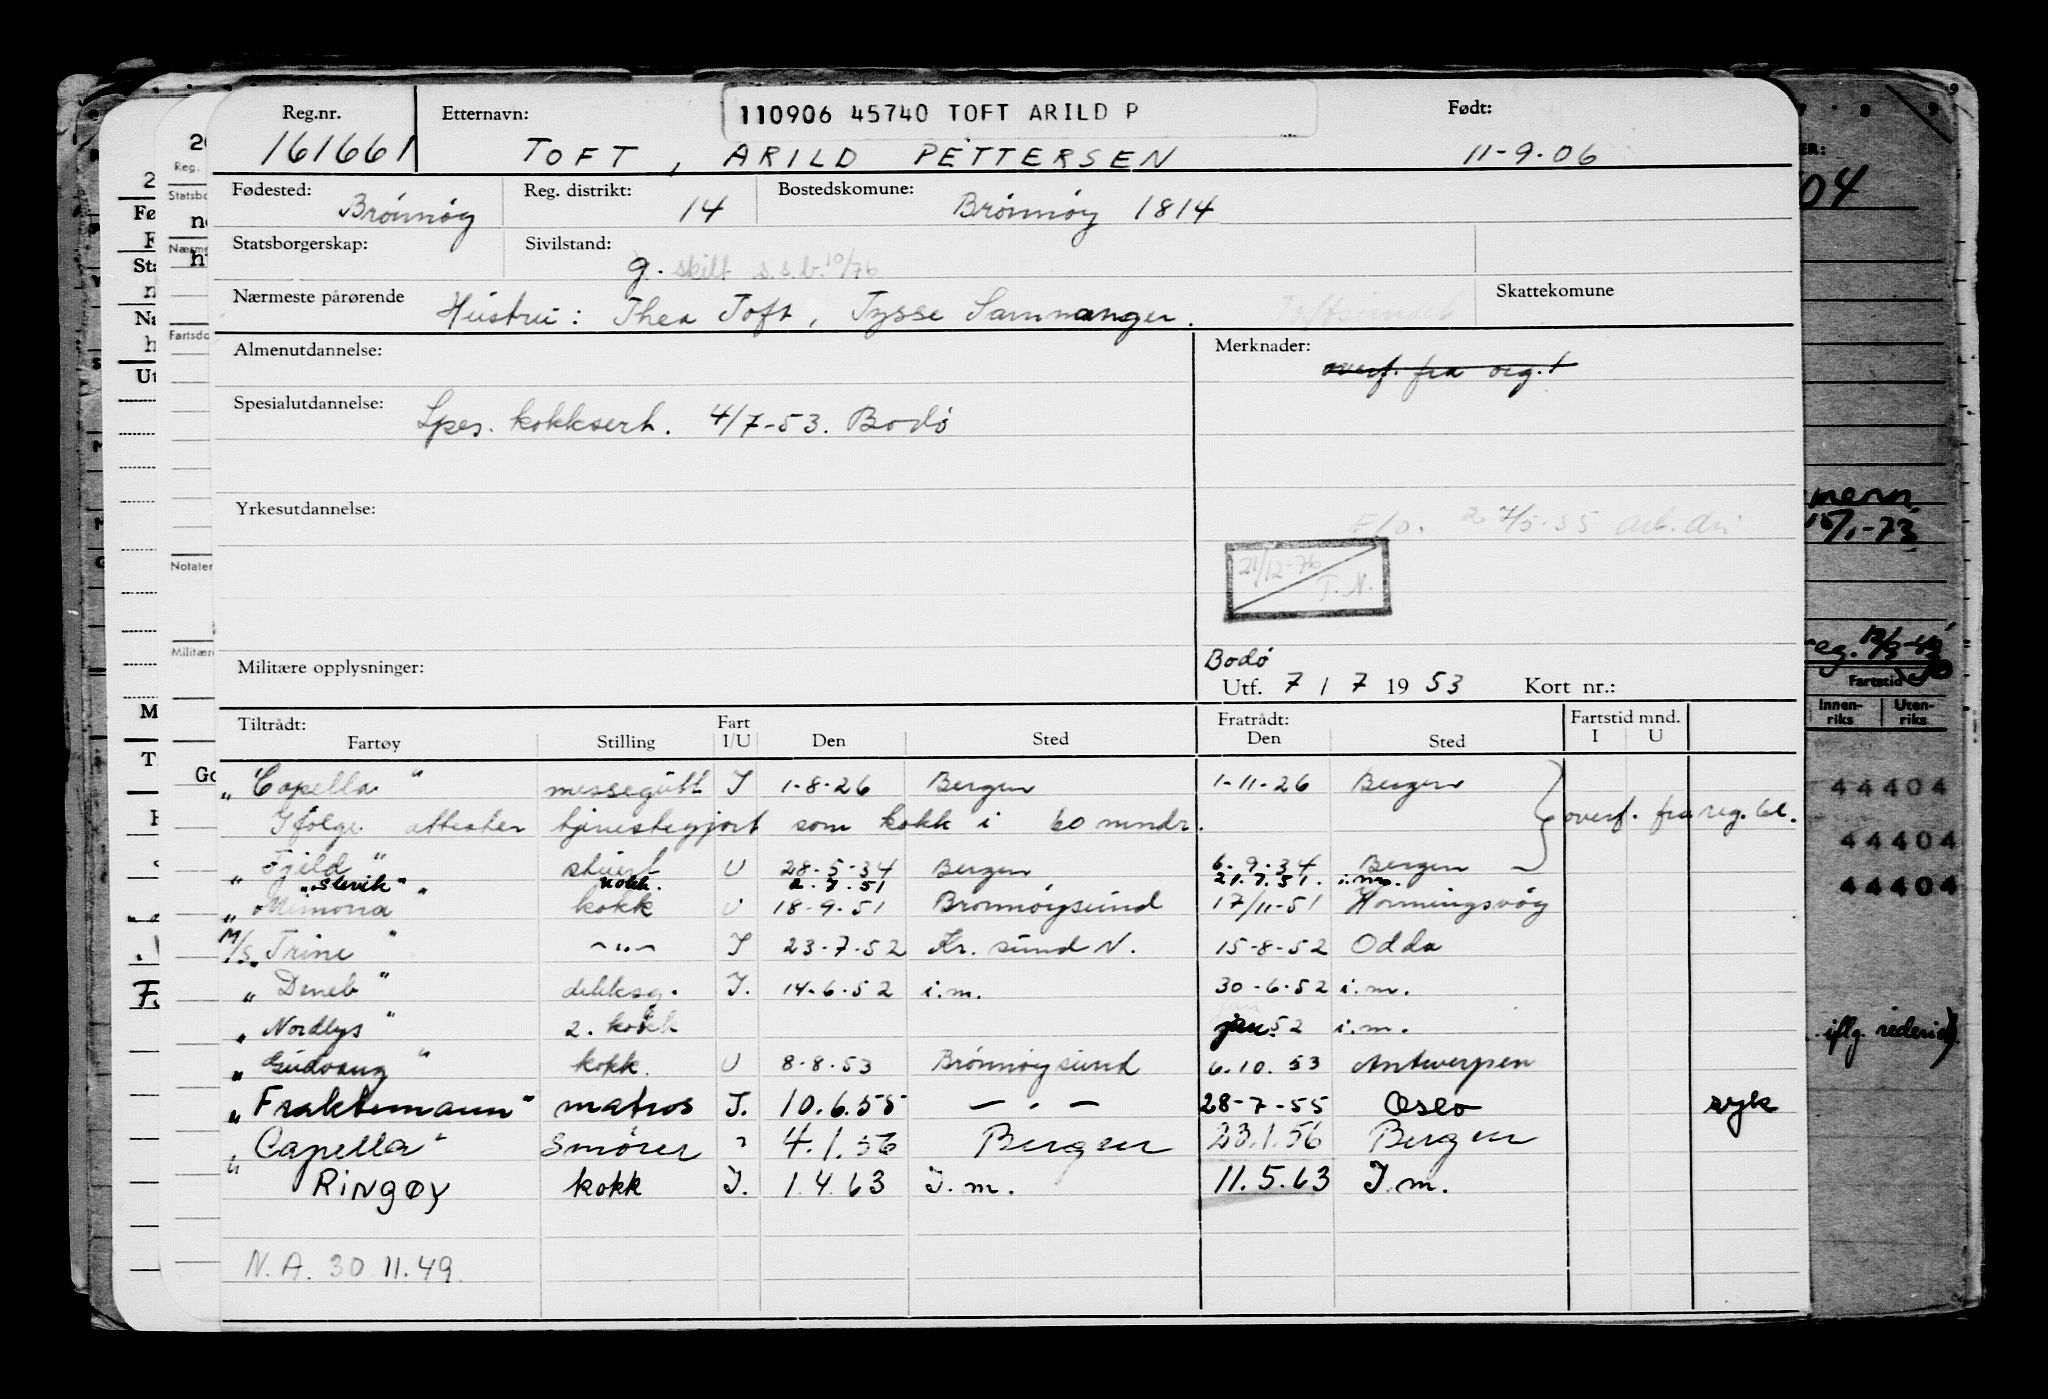 Reg.nr. Etternavn: 110906 45740 TOFT ARILD P Født:
161661 TOFT, ARILD PETTERSEN 11-9-06
Fødested: Brönnöy Reg. distrikt: 14 Bostedskomune: Brönnöy 1814
Statsborgerskap: Sivilstand: g. skilt s.s.b. 10/76
Nærmeste pårørende Hustru: Thea Toft, Tysse Samnanger. Toftsundet Skattekomune
Almenutdannelse: Merknader: overf. fra reg. 1
Spesialutdannelse: Spes. kokksert. 4/7-53. Bodö
Yrkesutdannelse:
F/o. 27/5-55 arb. dir
21/12-76 T.N.
Militære opplysninger:
Bodö
Utf. 7 / 7 19 53 Kort nr.:
Tiltrådt: Fart Fratrådt: Fartstid mnd.
Fartøy Stilling I/U Den Sted Den Sted I U
"Capella" messegutt I 1-8-26 Bergen 1-11-26 Bergen
Ifölge attester tjenestegjort som kokk i 60 mndr. overf. fra reg. bl.
"Fjeld" stuert U 28-5-34 Bergen 6-9-34 Bergen
kokk. 2.7.51 21.7.51. i.m.
kokk U 18-9-51 Brönnöysund 17/11-51 Honningsvåg
M/S "Trine" -"- I 23-7-52 Kr. sund N. 15-8-52 Odda
"Deneb" dekksg. I. 14-6-52 i.m. 30-6-52 i.m.
"Nordlys" 2. kokk jan. 52 i.m.
"Gudvang" kokk. U 8-8-53 Brönnöysund 6.10.53 Antwerpen
"Fraktemann" matros I. 10.6.55 — · — 28-7-55 Oslo syk
"Capella" Smører " 4.1.56 Bergen 23.1.56 Bergen
" Ringøy kokk I. 1.4.63 I.m. 11.5.63 I.m.
N.A. 30 11.49.
04
15/1-73
Fartstid
Innen-riks Uten-riks
44404
44404
44404
iflg. rederiet)